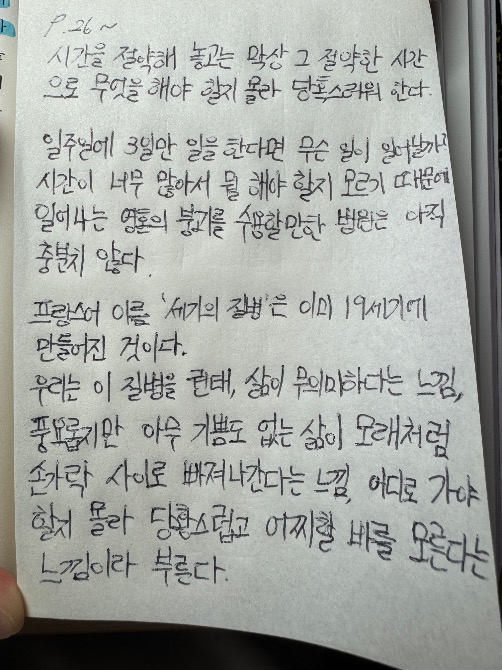 P.26~
시간을 절약해 놓고는 막상 그 절약한 시간
으로 무엇을 해야 할지 몰라 당혹스러워 한다.
일주일에 3일만 일을 한다면 무슨 일이 일어날까?
시간이 너무 많아서 뭘 해야 할지 모르기 때문에
일어나는 영혼의 붕괴를 수용할만한 병원은 아직
충분치 않다.
프랑스어 이름 '세기의 질병'은 이미 19세기에
만들어진 것이다.
우리는 이 질병을 권태, 삶이 무의미하다는 느낌,
풍요롭지만 아무 기쁨도 없는 삶이 모래처럼
손가락 사이로 빠져나간다는 느낌, 어디로 가야
할지 몰라 당황스럽고 어찌할 바를 모른다는
느낌이라 부른다.